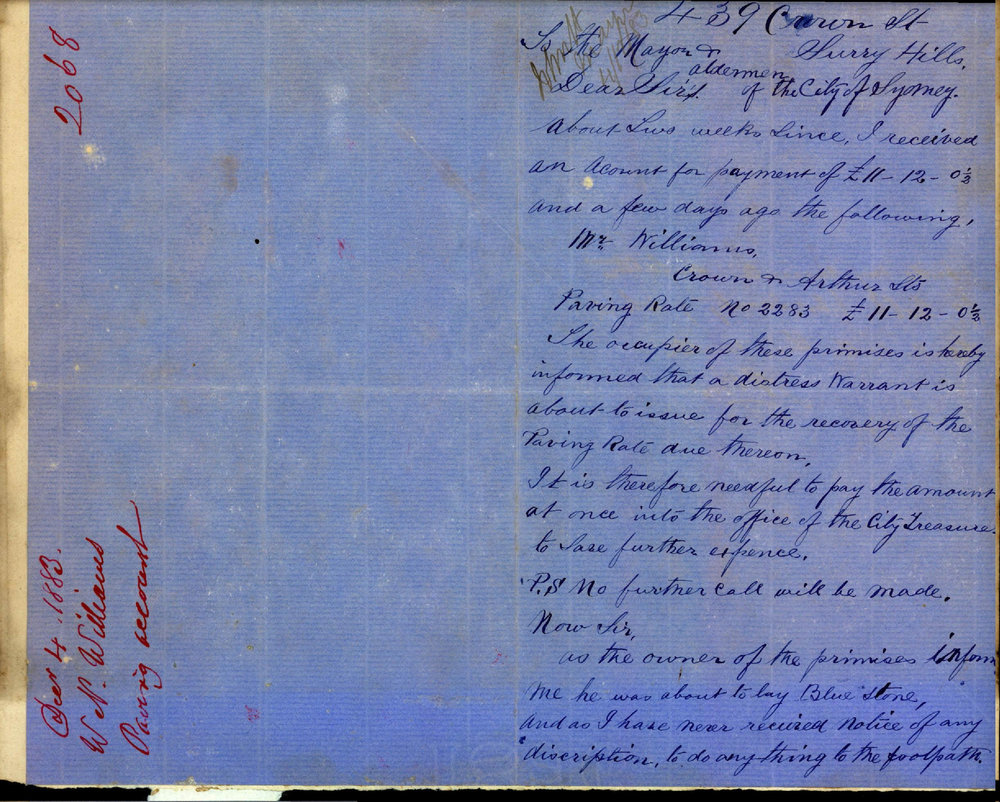 2068
Decr 4. 1883.
W. N. Williams
Paving account
439 Crown St
Surry Hills.
To the Mayor &
aldermen
Dear Sir's. of the City of Sydney.
About Two weeks Since, I received
an Acount for payment of £11-12-0½
and a few days ago the following,
Mr. Williams,
Crown & Arthur Sts
Paving Rate No 2283 £11-12-0½
The occupier of these primises is hereby
informed that a distress Warrant is
about to issue for the recovery of the
Paving Rate due thereon,
It is therefore needful to pay the amount
at once into the office of the City Treasurer
to Save further expence.
P.S No further Call will be made.
Now Sir,
as the owner of the primises inform
me he was about to lay Blue Stone,
and as I have never recived Notice of any
discription, to do any thing to the footpath.